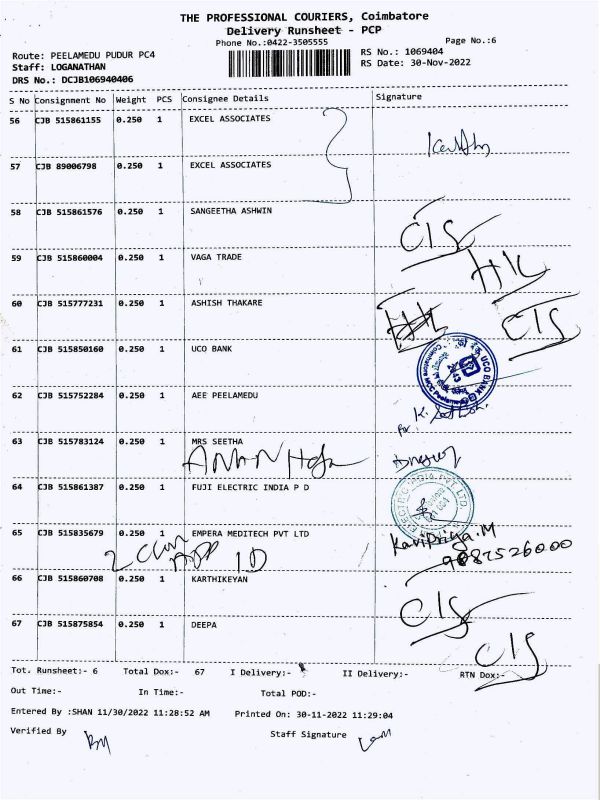 THE PROFESSIONAL COURIERS, Coimbatore
Delivery Runsheet - PCP
Phone No.:0422-3505555
Page No.:6
Route: PEELAMEDU PUDUR PC4
RS No.: 1069404
Staff: LOGANATHAN
RS Date: 30-Nov-2022
DRS No.: DCJB106940406
S No Consignment No Weight PCS Consignee Details Signature
56 CJB 515861155 0.250 1 EXCEL ASSOCIATES
57 CJB 89006798 0.250 1 EXCEL ASSOCIATES
58 CJB 515861576 0.250 1 SANGEETHA ASHWIN
CIS
59 CJB 515860004 0.250 1 VAGA TRADE
HK
60 CJB 515777231 0.250 1 ASHISH THAKARE
CIS
61 CJB 515850160 0.250 1 UCO BANK
UCO BANK
62 CJB 515752284 0.250 1 AEE PEELAMEDU
63 CJB 515783124 0.250 1 MRS SEETHA
64 CJB 515861387 0.250 1 FUJI ELECTRIC INDIA P D
ELECTRIC INDIA PVT LTD
65 CJB 515835679 0.250 1 EMPERA MEDITECH PVT LTD
Kavipriya.M
66 CJB 515860708 0.250 1 KARTHIKEYAN
CIS
67 CJB 515875854 0.250 1 DEEPA
CIS
Tot. Runsheet:- 6 Total Dox:- 67 I Delivery:- II Delivery:- RTN Dox:-
Out Time:- In Time:- Total POD:-
Entered By :SHAN 11/30/2022 11:28:52 AM Printed On: 30-11-2022 11:29:04
Verified By Staff Signature